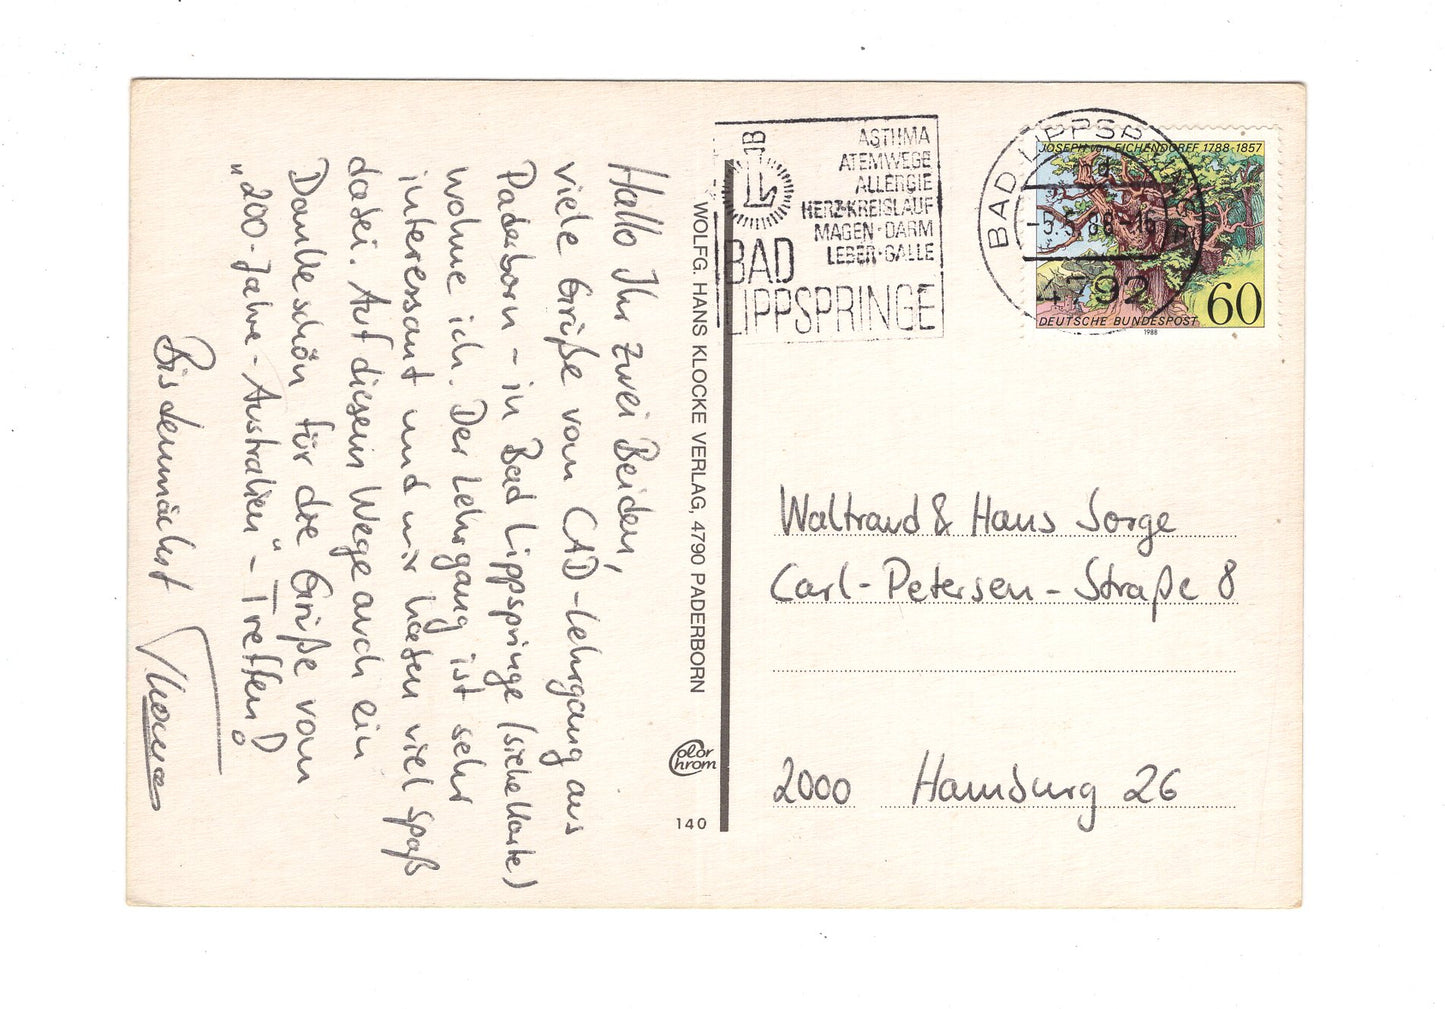 Hallo Ihr zwei Beiden,
viele Grüße vom CAD-Lehrgang aus
Paderborn - in Bad Lippspringe (siehe Karte)
wohne ich. Der Lehrgang ist sehr
interessant und wir haben viel Spaß
dabei. Auf diesem Wege auch ein
Dankeschön für die Grüße vom
„200-Jahre-Australien“-Treffen!
Bis demnächst
Thomas
WOLFG. HANS KLOCKE VERLAG, 4790 PADERBORN
Color
Chrom
140
1B
L
ASTHMA
ATEMWEGE
ALLERGIE
HERZ·KREISLAUF
MAGEN·DARM
LEBER·GALLE
BAD
LIPPSPRINGE
BAD LIPPSPRINGE
d
-5.5.88-16
4792
JOSEPH von EICHENDORFF 1788-1857
60
DEUTSCHE BUNDESPOST
1988
Waltraud & Hans Sorge
Carl-Petersen-Straße 8
2000 Hamburg 26